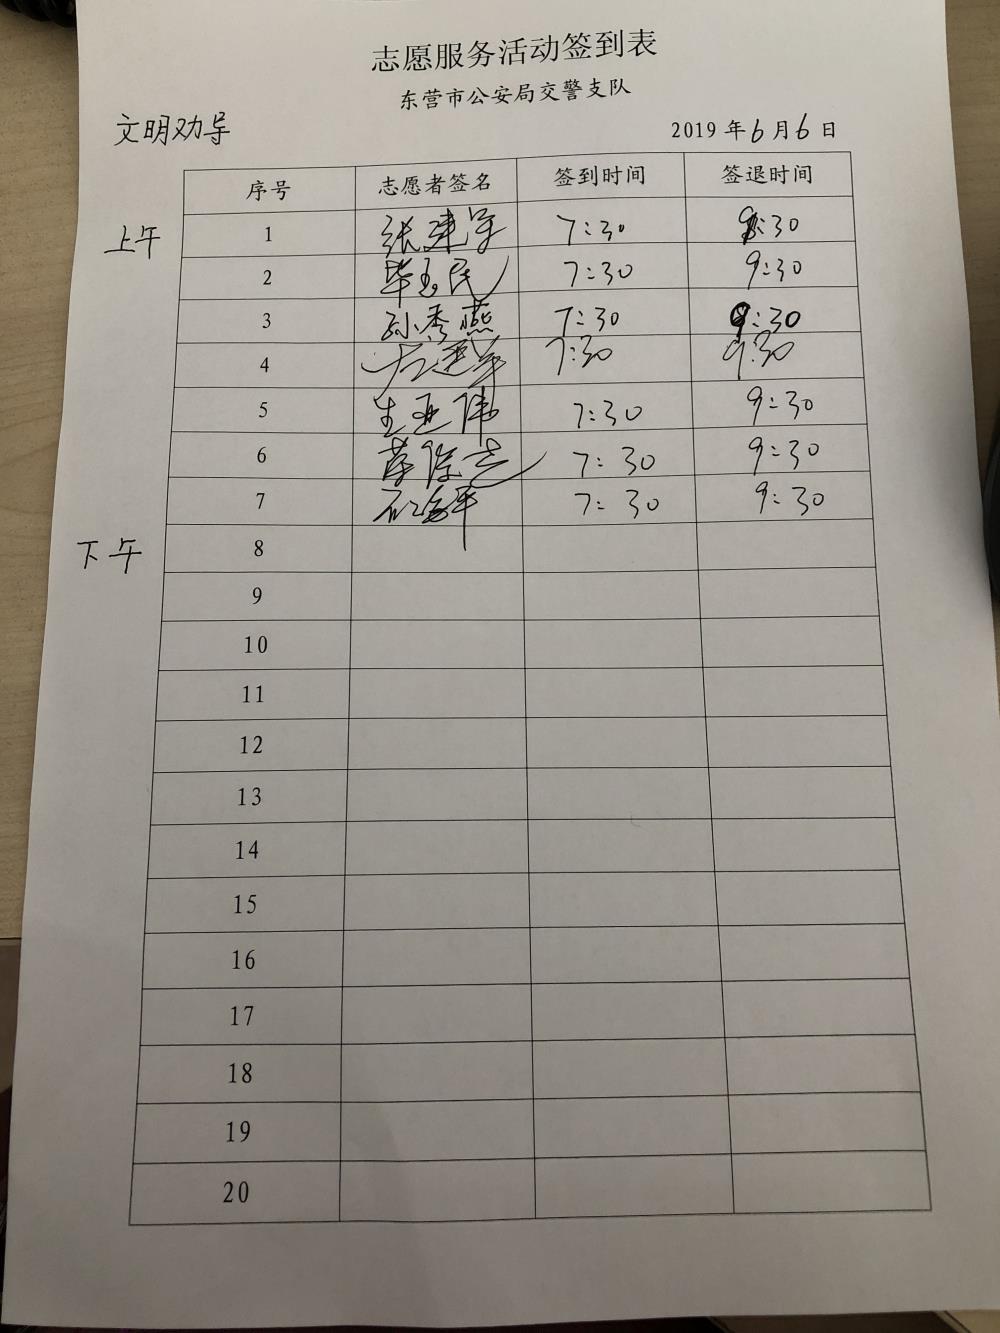 志愿服务活动签到表
东营市公安局交警支队
文明劝导
2019 年 6 月 6 日
序号 志愿者签名 签到时间 签退时间
上午
1 张建军 7:30 9:30
2 毕玉民 7:30 9:30
3 孙秀燕 7:30 9:30
4 7:30 9:30
5 生亚伟 7:30 9:30
6 7:30 9:30
7 7:30 9:30
下午
8
9
10
11
12
13
14
15
16
17
18
19
20